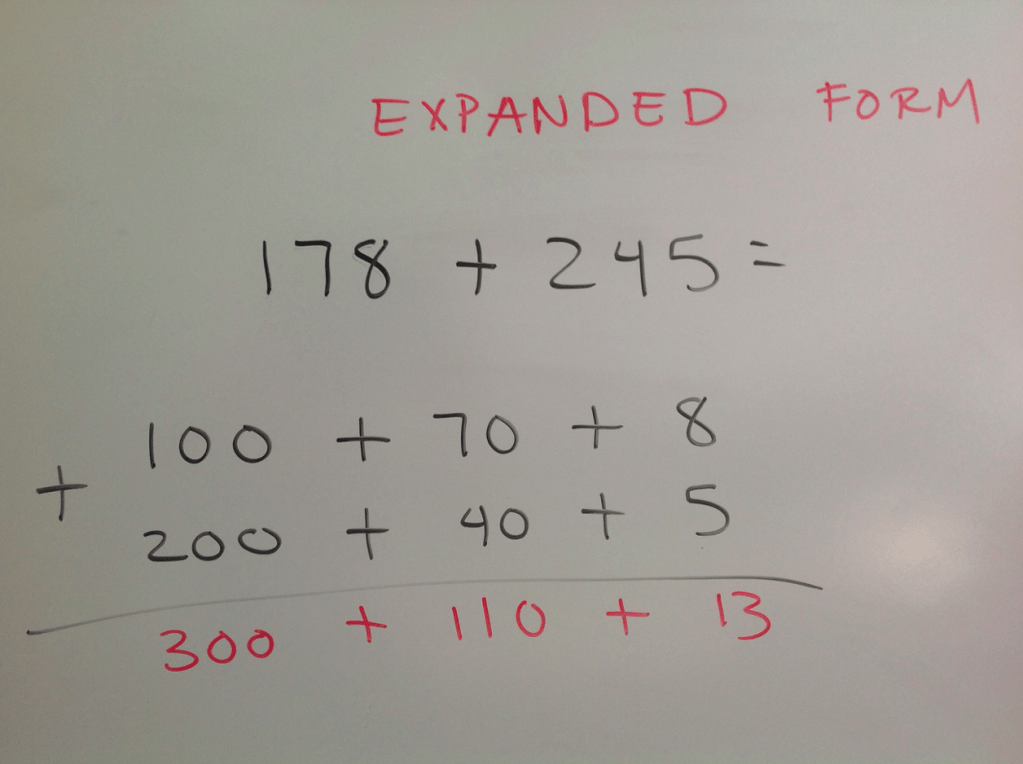 EXPANDED FORM
178 + 245 =
100 + 70 + 8
+
200 + 40 + 5
300 + 110 + 13